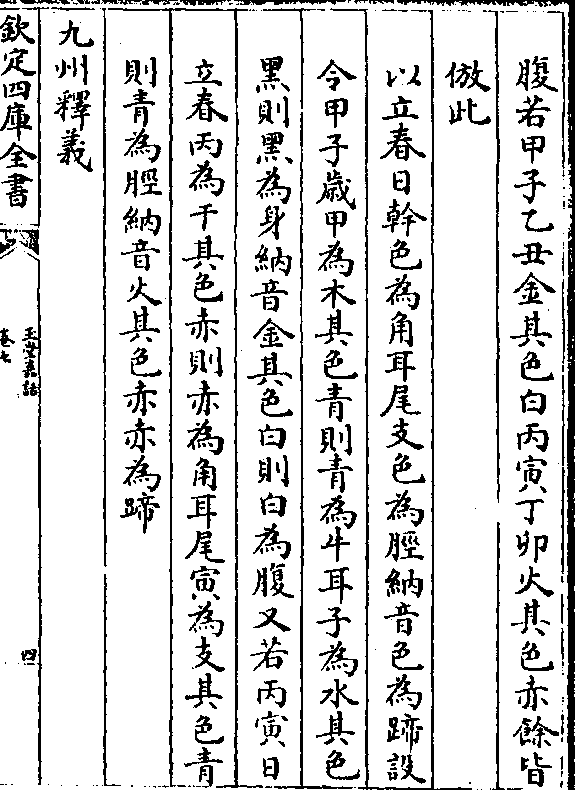 腹若甲子乙丑金其色白丙寅丁卯火其色赤餘皆
倣此
以立春日幹色為角耳尾支色為脛納音色為蹄設
令甲子歳甲為木其色青則青為牛耳子為水其色
黒則黒為身納音金其色白則白為腹又若丙寅日
立春丙為干其色赤則赤為角耳尾寅為支其色青
則青為脛納音火其色赤赤為蹄
九州釋義
欽定四庫全書
玉堂嘉話
卷七
四